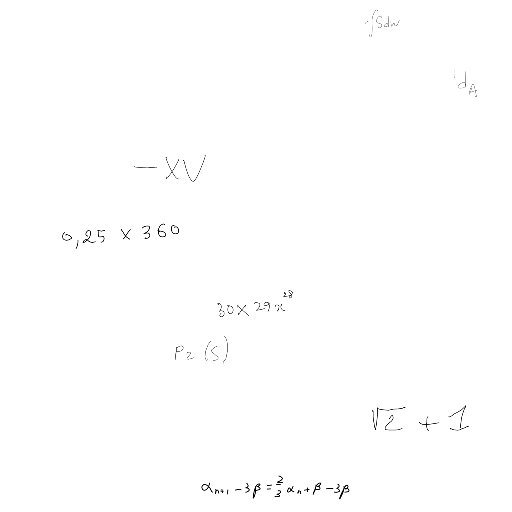 ∫Sdw
1d_A
-XV
0,25 × 360
30 × 29x^28
P_2(S)
√2 + 1
α_{n+1} - 3β = 2/3 α_n + β - 3β